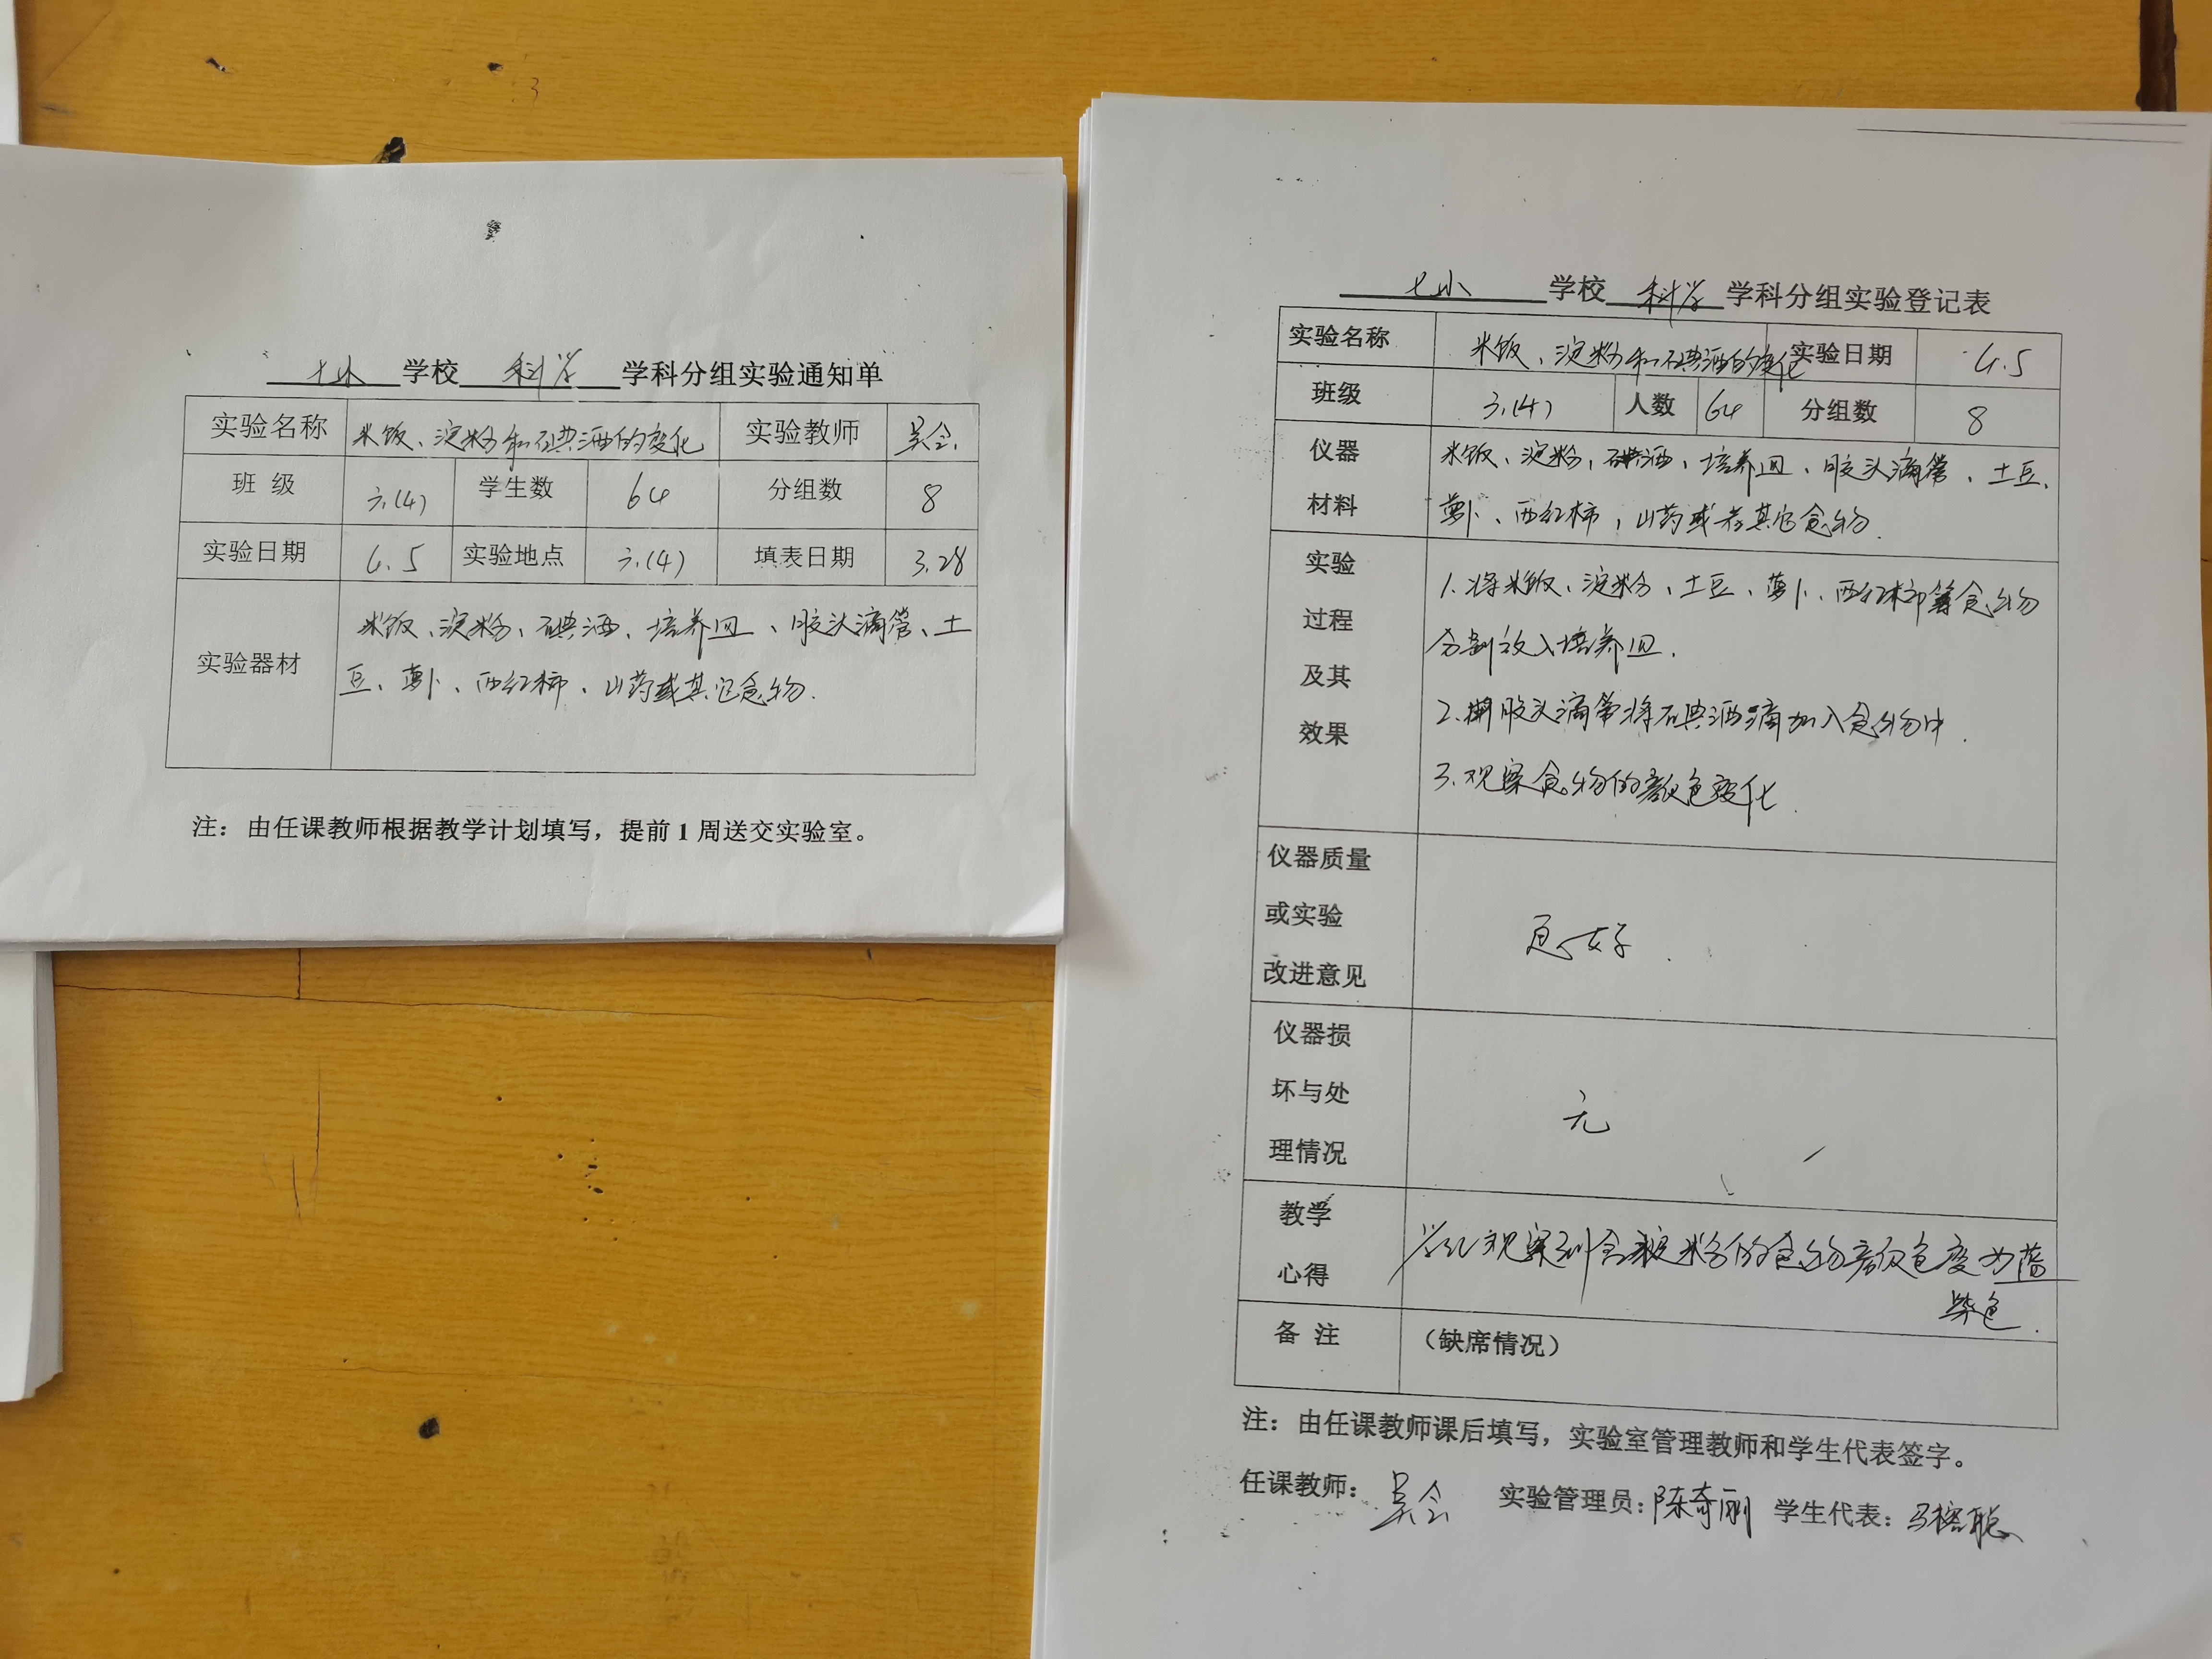 七小 学校 科学 学科分组实验通知单
实验名称 米饭、淀粉和碘酒的变化 实验教师 吴会
班 级 六.(4) 学生数 64 分组数 8
实验日期 4.5 实验地点 六.(4) 填表日期 3.28
实验器材 米饭、淀粉、碘酒、培养皿、胶头滴管、土
豆、萝卜、西红柿、山药或其它食物.
注：由任课教师根据教学计划填写，提前1周送交实验室。
七小 学校 科学 学科分组实验登记表
实验名称 米饭、淀粉和碘酒的变化 实验日期 4.5
班级 六.(4) 人数 64 分组数 8
仪器 米饭、淀粉、碘酒、培养皿、胶头滴管、土豆、
材料 萝卜、西红柿、山药或者其它食物.
实验
过程
及其
效果
1.将米饭、淀粉、土豆、萝卜、西红柿等食物
分别放入培养皿.
2.用胶头滴管将碘酒滴加入食物中.
3.观察食物的颜色变化.
仪器质量
或实验
改进意见
良好.
仪器损
坏与处
理情况
无
教学
心得
学生观察到含淀粉的食物颜色变为蓝
紫色.
备 注 （缺席情况）
注：由任课教师课后填写，实验室管理教师和学生代表签字。
任课教师： 吴会 实验管理员：陈奇刚 学生代表：马